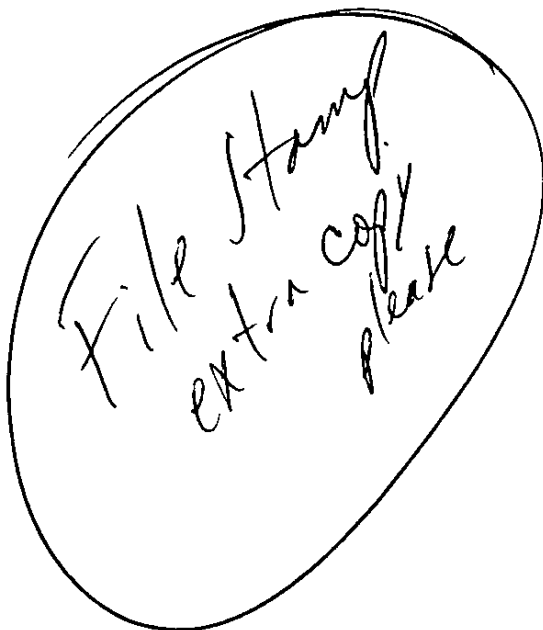 File Stamp
extra copy
please